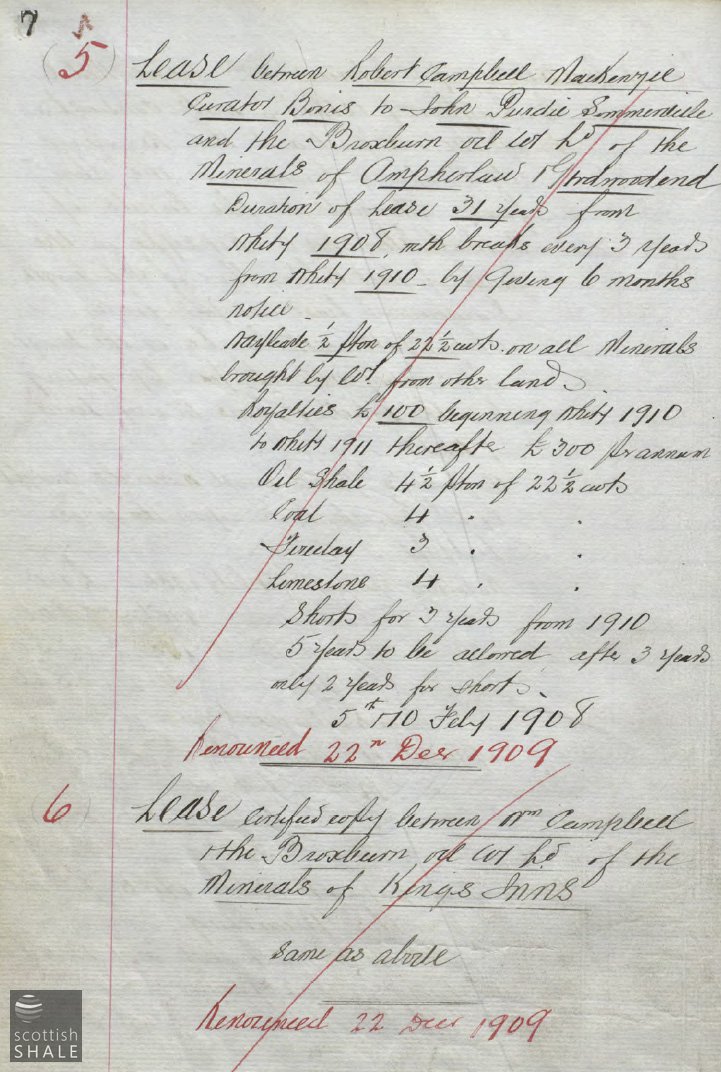 7
(5) Lease between Robert Campbell MacKenzie
Curator Bonis to John Purdie Sommerville
and the Broxburn oil Coy Ld of the
Minerals of Ampherlaw & Stradwoodend
Duration of Lease 31 years from
Whity 1908, with breaks every 3 years
from Whity 1910 - by giving 6 months
notice -
Wayleave ½ p ton of 22½ cwts. on all Minerals
brought by Coy. from other lands.
Royalties £100 beginning Whity 1910
to Whity 1911 thereafter £300 per annum
Oil Shale 4½ p ton of 22½ cwts
Coal 4 " "
Fireclay 3 " "
Limestone 4 " "
Shorts for 3 years from 1910
5 years to be allowed, after 3 years
only 2 years for shorts.
5th & 10 Feby 1908
Renounced 22nd Decr 1909
(6) Lease Certified copy between Wm Campbell
& the Broxburn oil Coy Ld of the
Minerals of Kings Inns
Same as above
Renounced 22 Decr 1909
scottish
SHALE